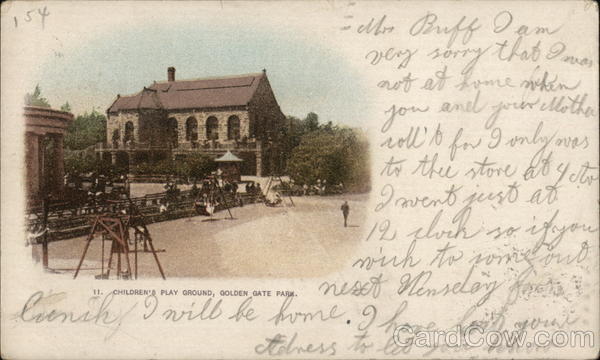 154
Mrs Buff I am
very sorry that I was
not at home when
you and your Mother
coll't for I only was
to thee store at
I went just at
12 clock so if you
wich to come out
next Wenseday for
I will be home. I have your
adress to let you
11. CHILDREN'S PLAY GROUND, GOLDEN GATE PARK.
CardCow.com
CardCow.com
CardCow.com